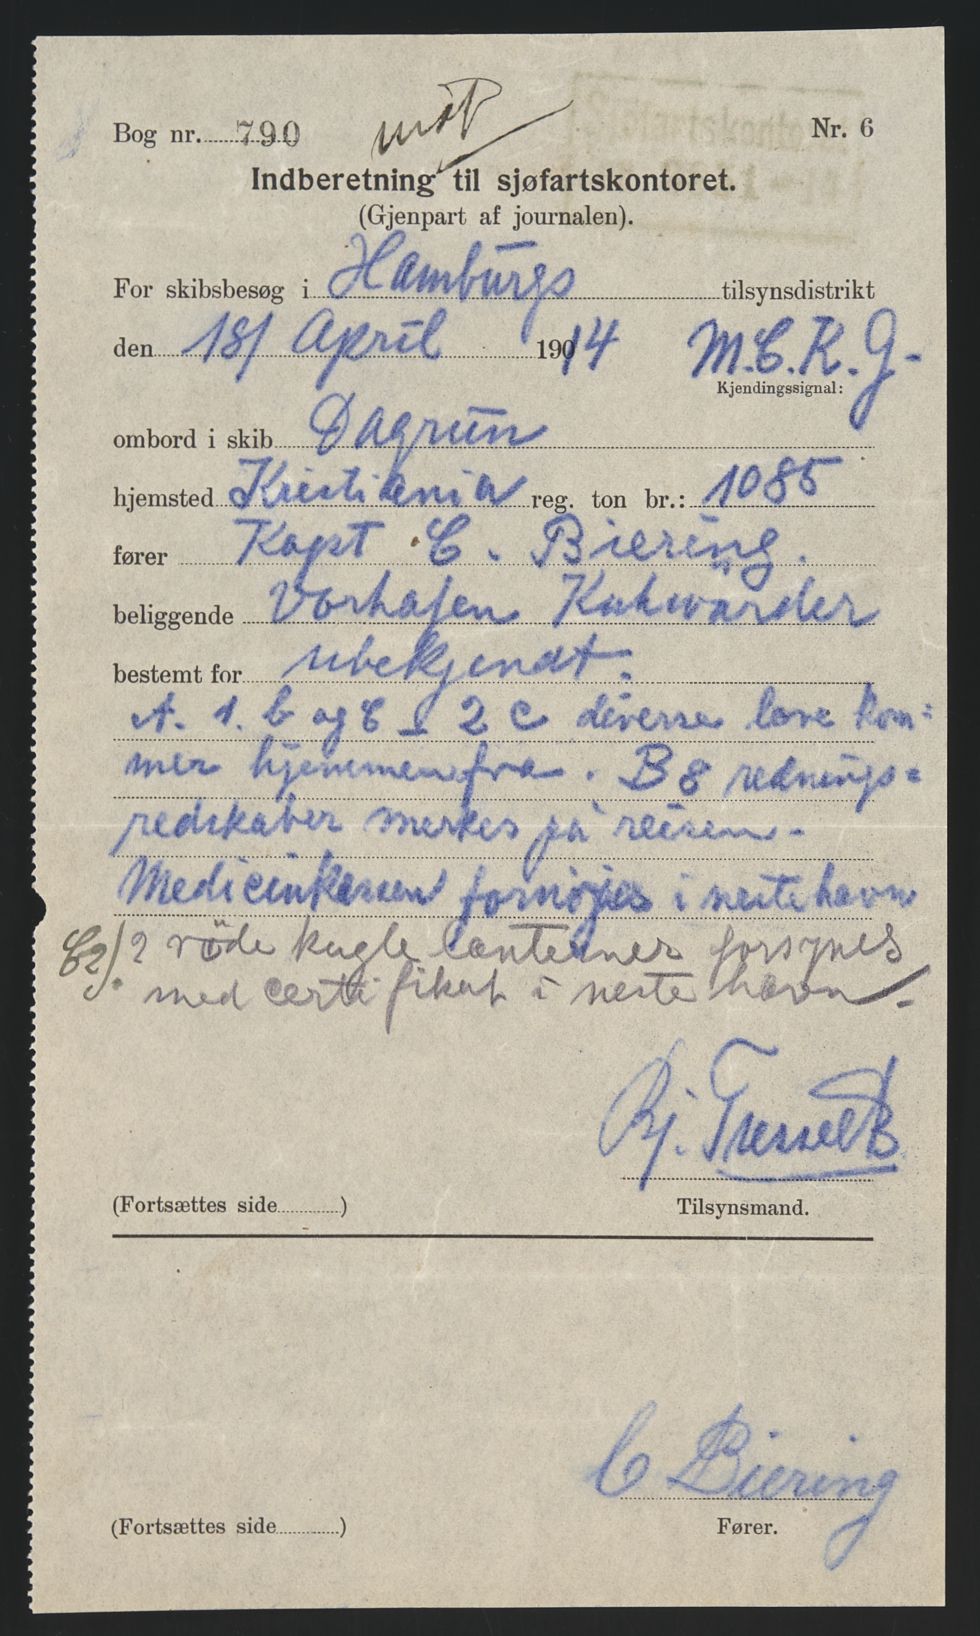 Bog nr. 790
Nr. 6
Indberetning til sjøfartskontoret.
(Gjenpart af journalen).
For skibsbesøg i Hamburgs tilsynsdistrikt
den 18/ April 1914 M.C.K.G.
Kjendingssignal:
ombord i skib Dagrun
hjemsted Kristiania reg. ton br.: 1085
fører Kapt C. Biering.
beliggende Vorhafen Kuhwärder
bestemt for ubekjendt.
A. 1. b og C – 2 c diverse love kom=
mer hjemmenfra. B 8 rednings=
redskaber merkes på reisen.
Medicinkassen fornøjes i neste havn
C2). 2 røde kugle lanternes forsynes
med certifikat i neste havn.
Bj. Tresselt
(Fortsættes side )
Tilsynsmand.
C Biering
(Fortsættes side )
Fører.